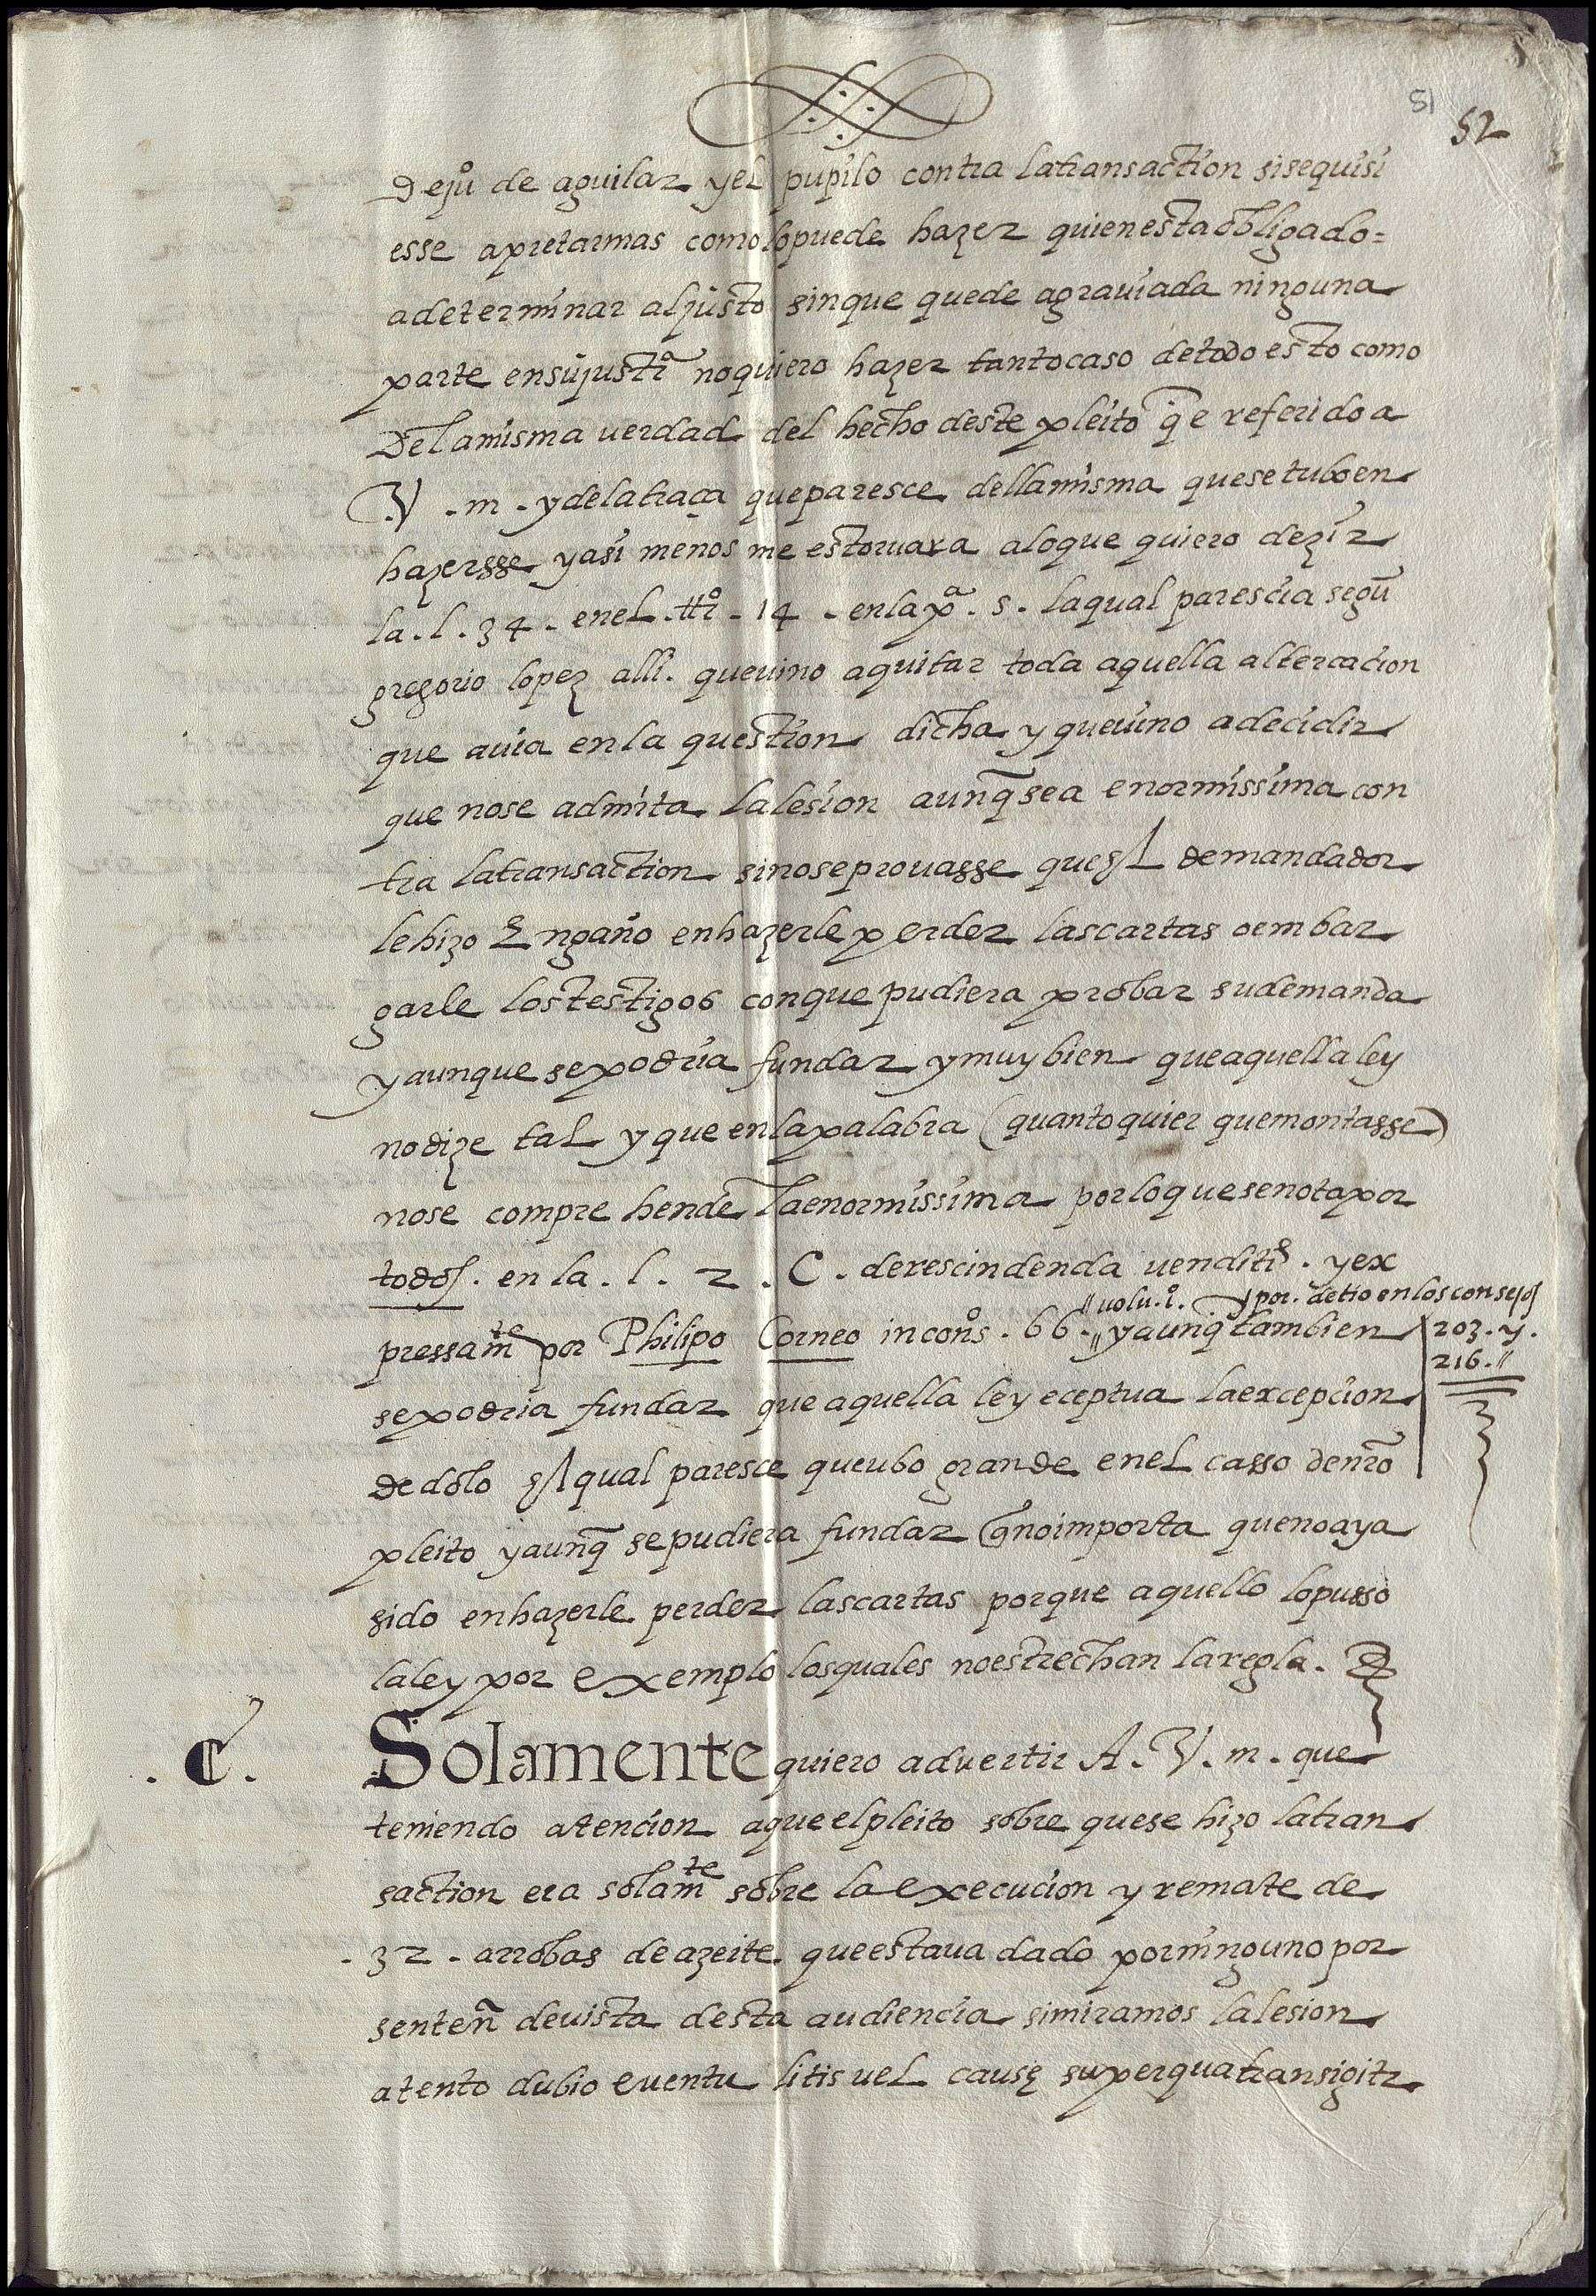 51
52
De juº de aguilar y el pupilo contra la transaction si se quisi
esse apretar mas como lo puede hazer quien esta obligado=
a determinar al justo sin que quede agrauiada ninguna
parte en su justiª no quiero hazer tanto caso de todo esto como
De la misma uerdad del hecho deste pleito q̃ e referido a
V. m. y de la traça que paresce della misma que se tubo en
hazersse y asi menos me estoruara a lo que quiero dezir
la. l. 34. en el. ttº. 14. en la pª. 5. la qual parescia segũ
gregorio lopez alli. que uino a quitar toda aquella altercacion
que auia en la question dicha y que uino a decidir
que no se admita la lesion aunq̃ sea enormissima con
tra la transaction si no se prouasse que el demandador
le hizo Engaño en hazerle perder las cartas o embar
garle los testigos con que pudiera probar su demanda
y aunque se podria fundar y muy bien que aquella ley
no dize tal y que en la palabra (quanto quier que montasse)
no se comprehende la enormissima por lo que se nota por
todos. en la. l. 2. C. de rescindenda uenditiᵉ. y ex
"uolu. iº. y por. detio en los consejos
pressamᵗᵉ por Philipo Corneo in consº. 66." y aunq̃ tambien
203. y.
216."
se podria fundar que aquella ley eceptua la excepcion
de dolo el qual paresce que ubo grande en el casso de nr̃o
pleito y aunq̃ se pudiera fundar q̃ no importa que no aya
sido en hazerle perder las cartas porque aquello lo pusso
la ley por exemplo los quales no estrechan la regla.
.C. Solamente quiero advertir A. V. m. que
teniendo atencion a que el pleito sobre que se hizo la tran
saction era solamᵗᵉ sobre la execucion y remate de
.32. arrobas de azeite que estaua dado por ninguno por
sentenã de uista desta audiencia si miramos la lesion
atento dubio euentu litis uel causę super qua transigitr